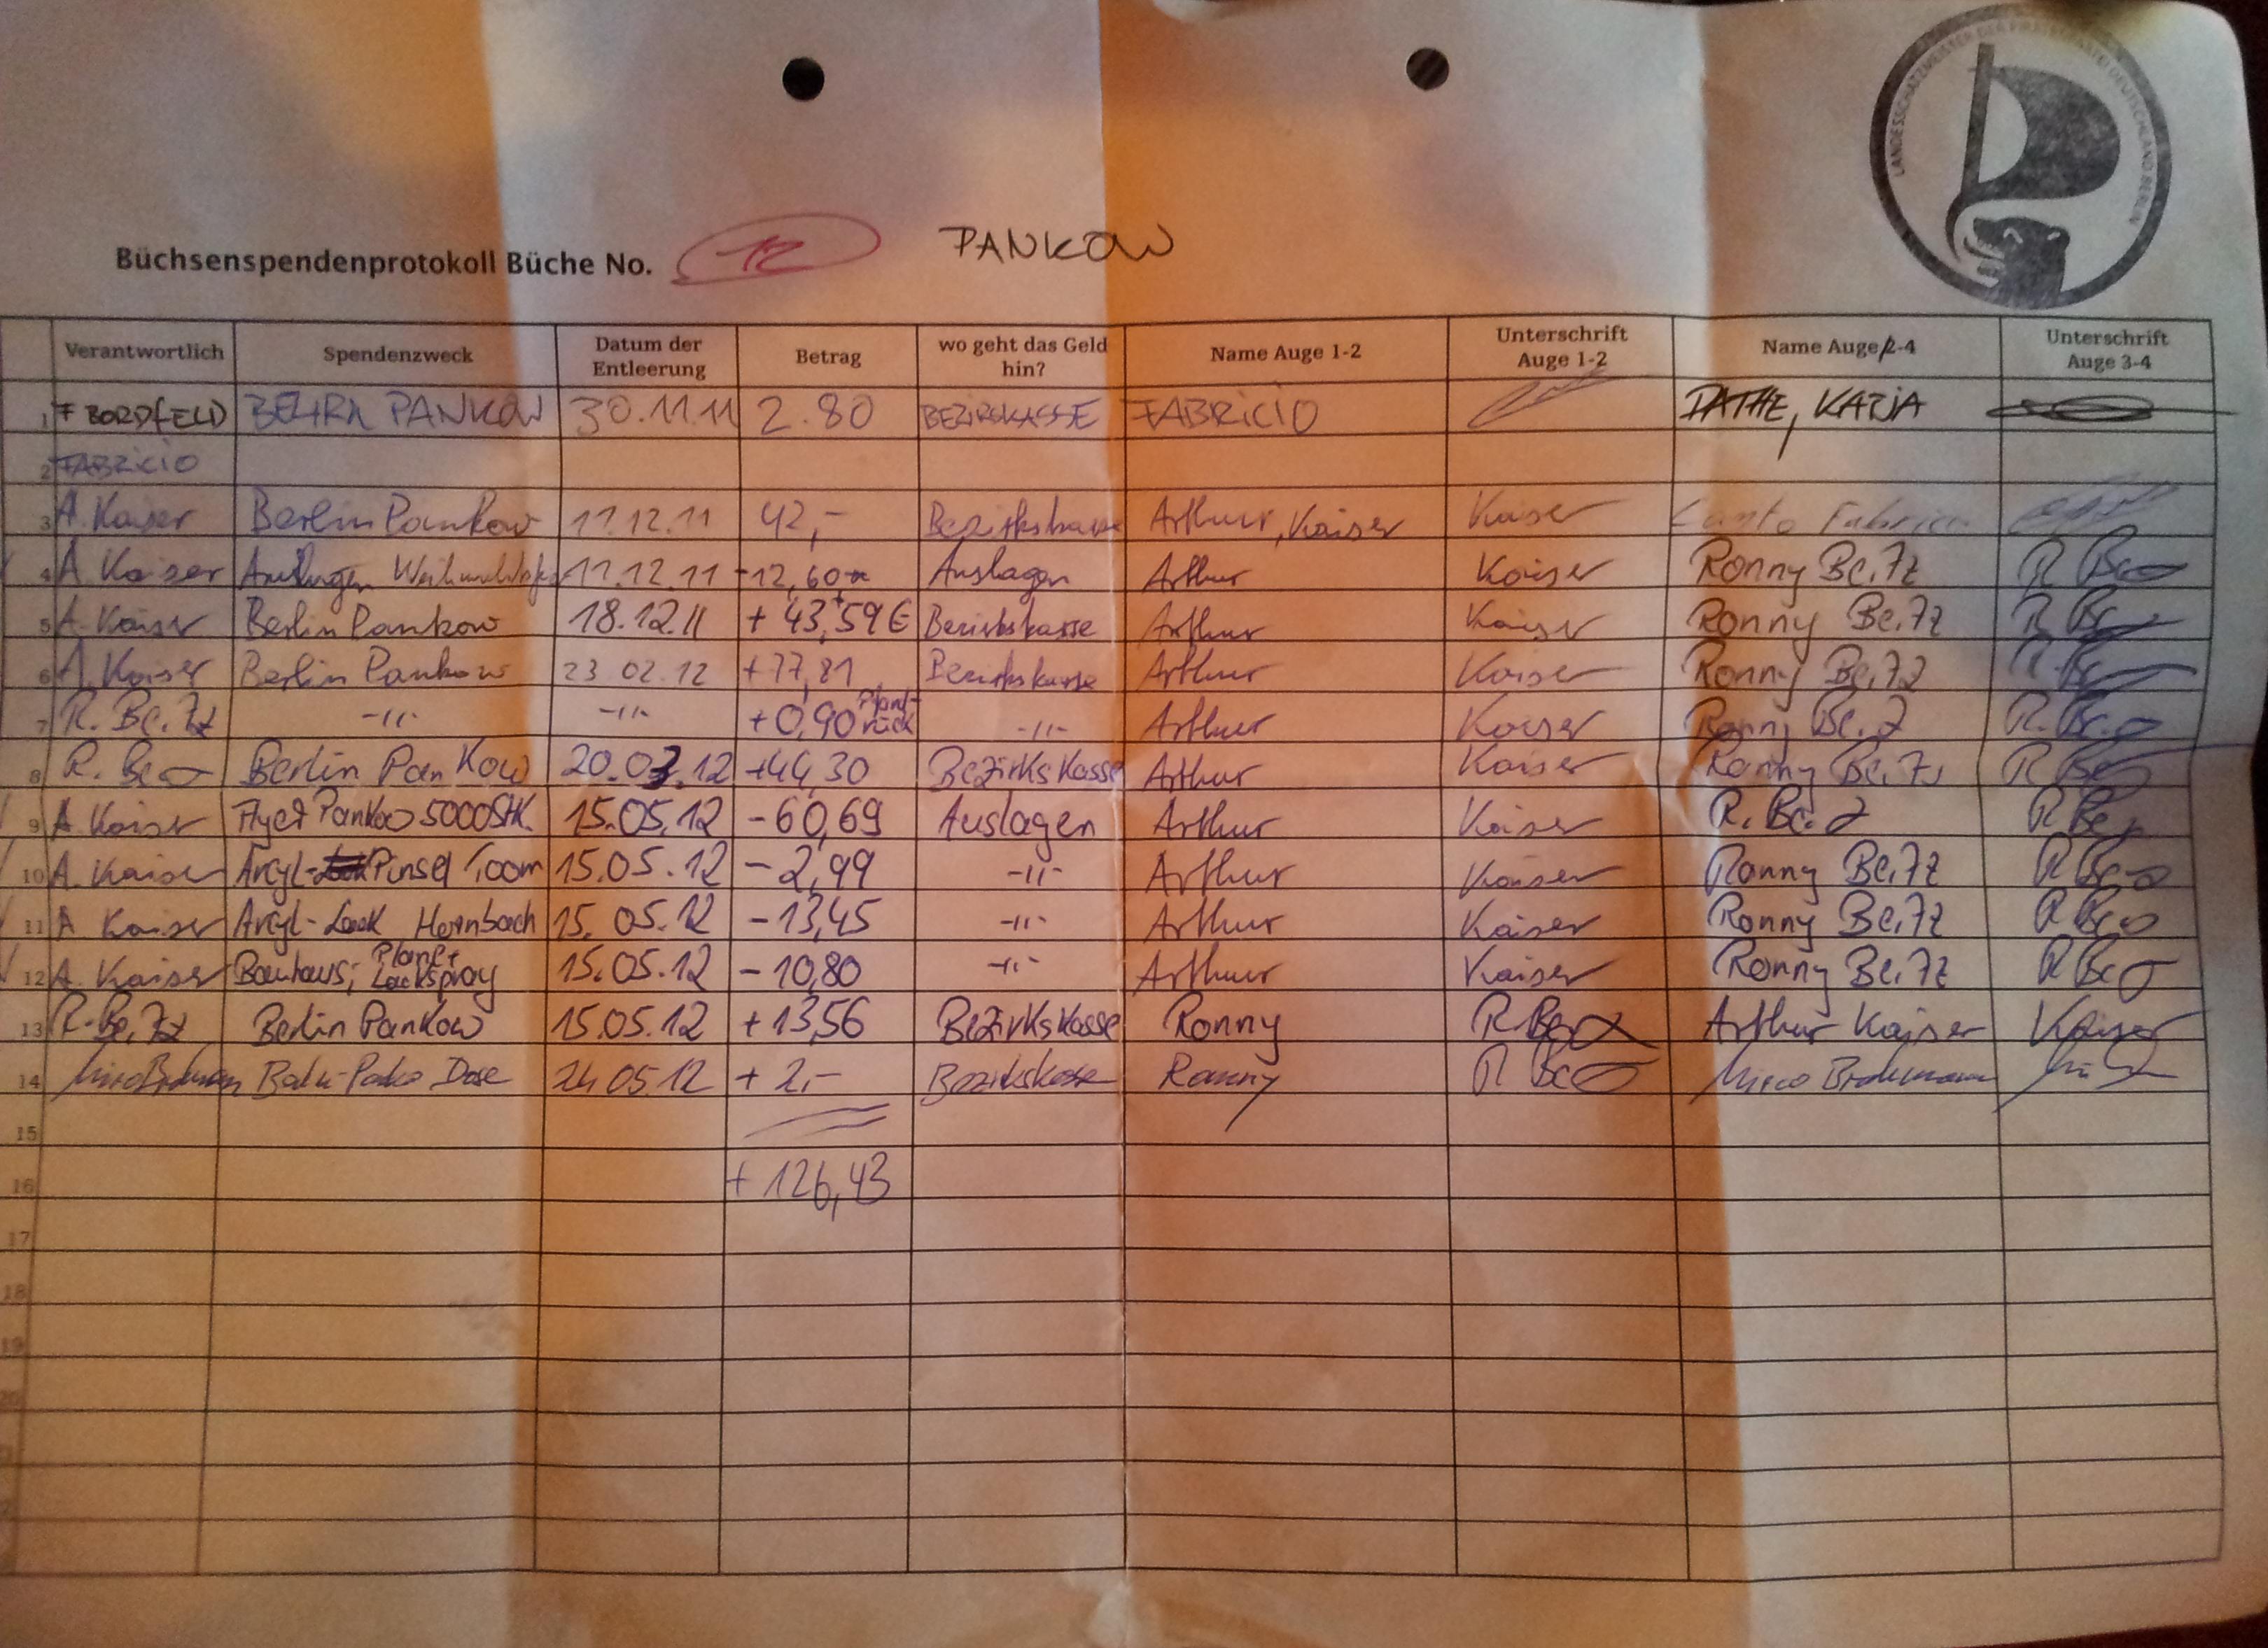 LANDESSCHATZMEISTER DER PIRATENPARTEI DEUTSCHLAND BERLIN
Büchsenspendenprotokoll Büche No. 12 PANKOW
Verantwortlich Spendenzweck Datum der Entleerung Betrag wo geht das Geld hin? Name Auge 1-2 Unterschrift Auge 1-2 Name Auge 2-4 Unterschrift Auge 3-4
1 F BORDFELD PANKOW 30.11.11 2.80 BEZIRKSKASSE FABRICIO PATHE, KATJA
2 FABRICIO
3 A. Kaiser Berlin Pankow 11.12.11 42,- Bezirkskasse Arthur, Kaiser Kaiser
4 A Kaiser Auslagen 11.12.11 -12,60 Auslagen Arthur Kaiser Ronny
5 A. Kaiser Berlin Pankow 18.12.11 + 43,59 € Bezirkskasse Arthur Kaiser Ronny
6 A. Kaiser Berlin Pankow 23 02.12 +77,81 Bezirkskasse Arthur Kaiser Ronny
7 -"- -"- +0,90 Pfand-rück -"- Arthur Kaiser Ronny
8 Berlin Pankow 20.03.12 +44,30 Bezirkskasse Arthur Kaiser Ronny
9 A. Kaiser Flyer Pankow 5000 Stk. 15.05.12 -60,69 Auslagen Arthur Kaiser
10 A. Kaiser Acryl- Pinsel Toom 15.05.12 -2,99 -"- Arthur Kaiser Ronny
11 A Kaiser Acryl-Lack Hornbach 15.05.12 -13,45 -"- Arthur Kaiser Ronny
12 A. Kaiser Bauhaus; Plane+ Lackspray 15.05.12 -10,80 -"- Arthur Kaiser Ronny
13 Berlin Pankow 15.05.12 +13,56 Bezirkskasse Ronny Arthur Kaiser Kaiser
14 Dose 24.05.12 + 2,- Bezirkskasse Ronny Mirco
15
16 + 126,43
17
18
19
20